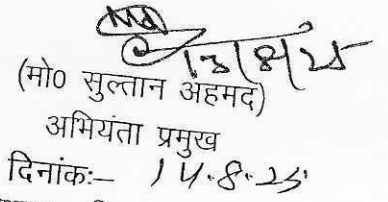 13/8/25
(मो0 सुल्तान अहमद)
अभियंता प्रमुख
दिनांकः– 14.8.25